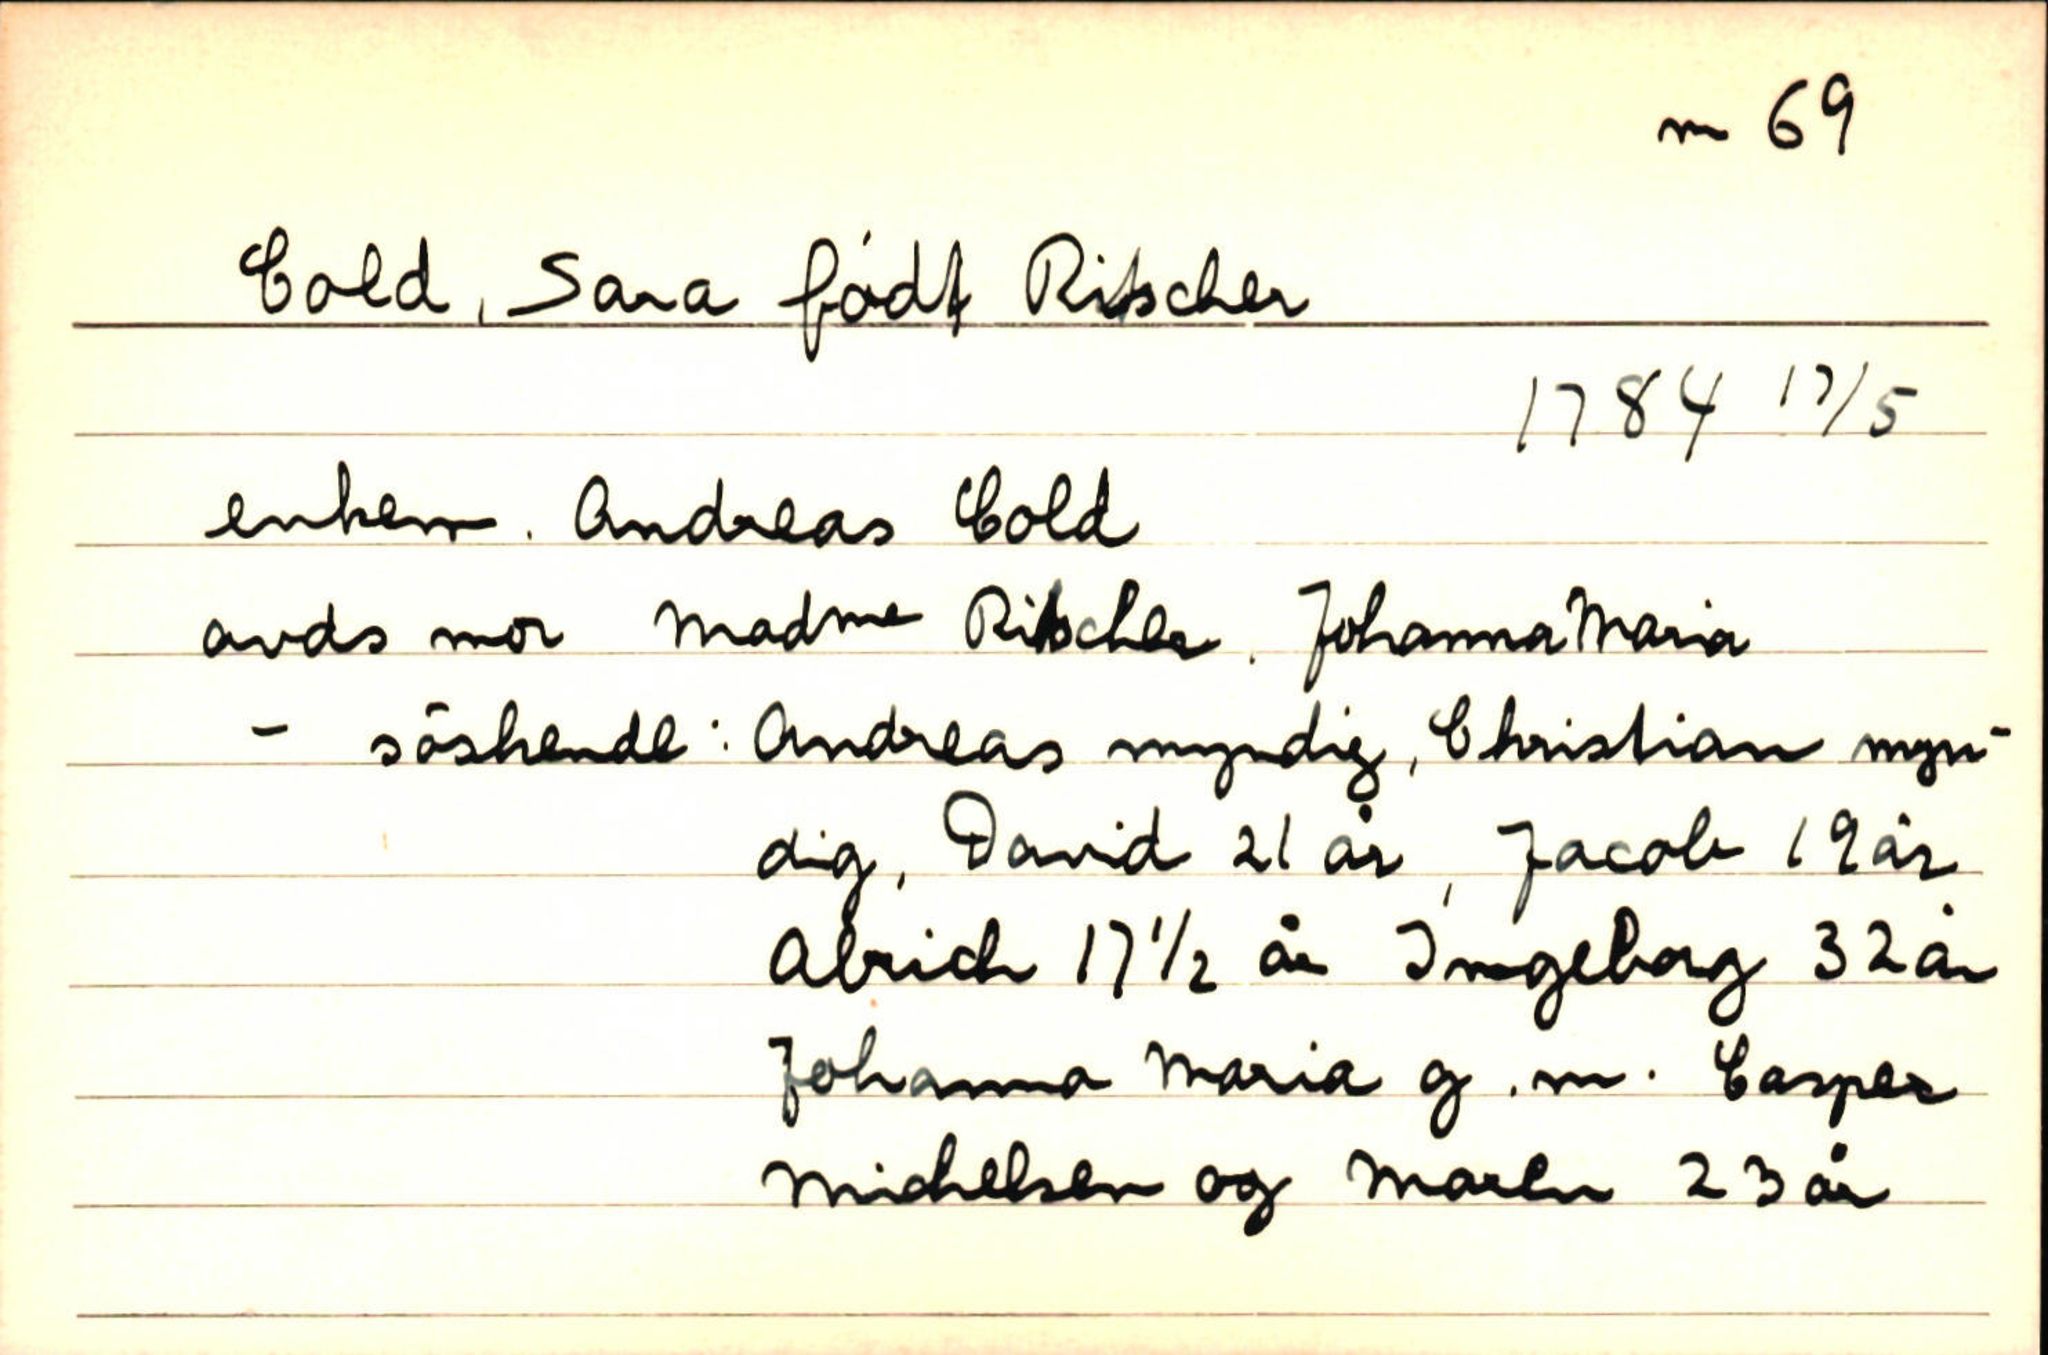 m 69
Cold, Sara född Ritscher
1784 17/5
enkem. Andreas Cold
avds mor Madme Ritscher. Johanna Maria
- söskende: Andreas myndig, Christian myn-
dig, David 21 år, Jacob 19 år
Alrich 17 1/2 år Ingeborg 32 år
Johanna Maria g.m. Casper
Michelsen og Maren 23 år